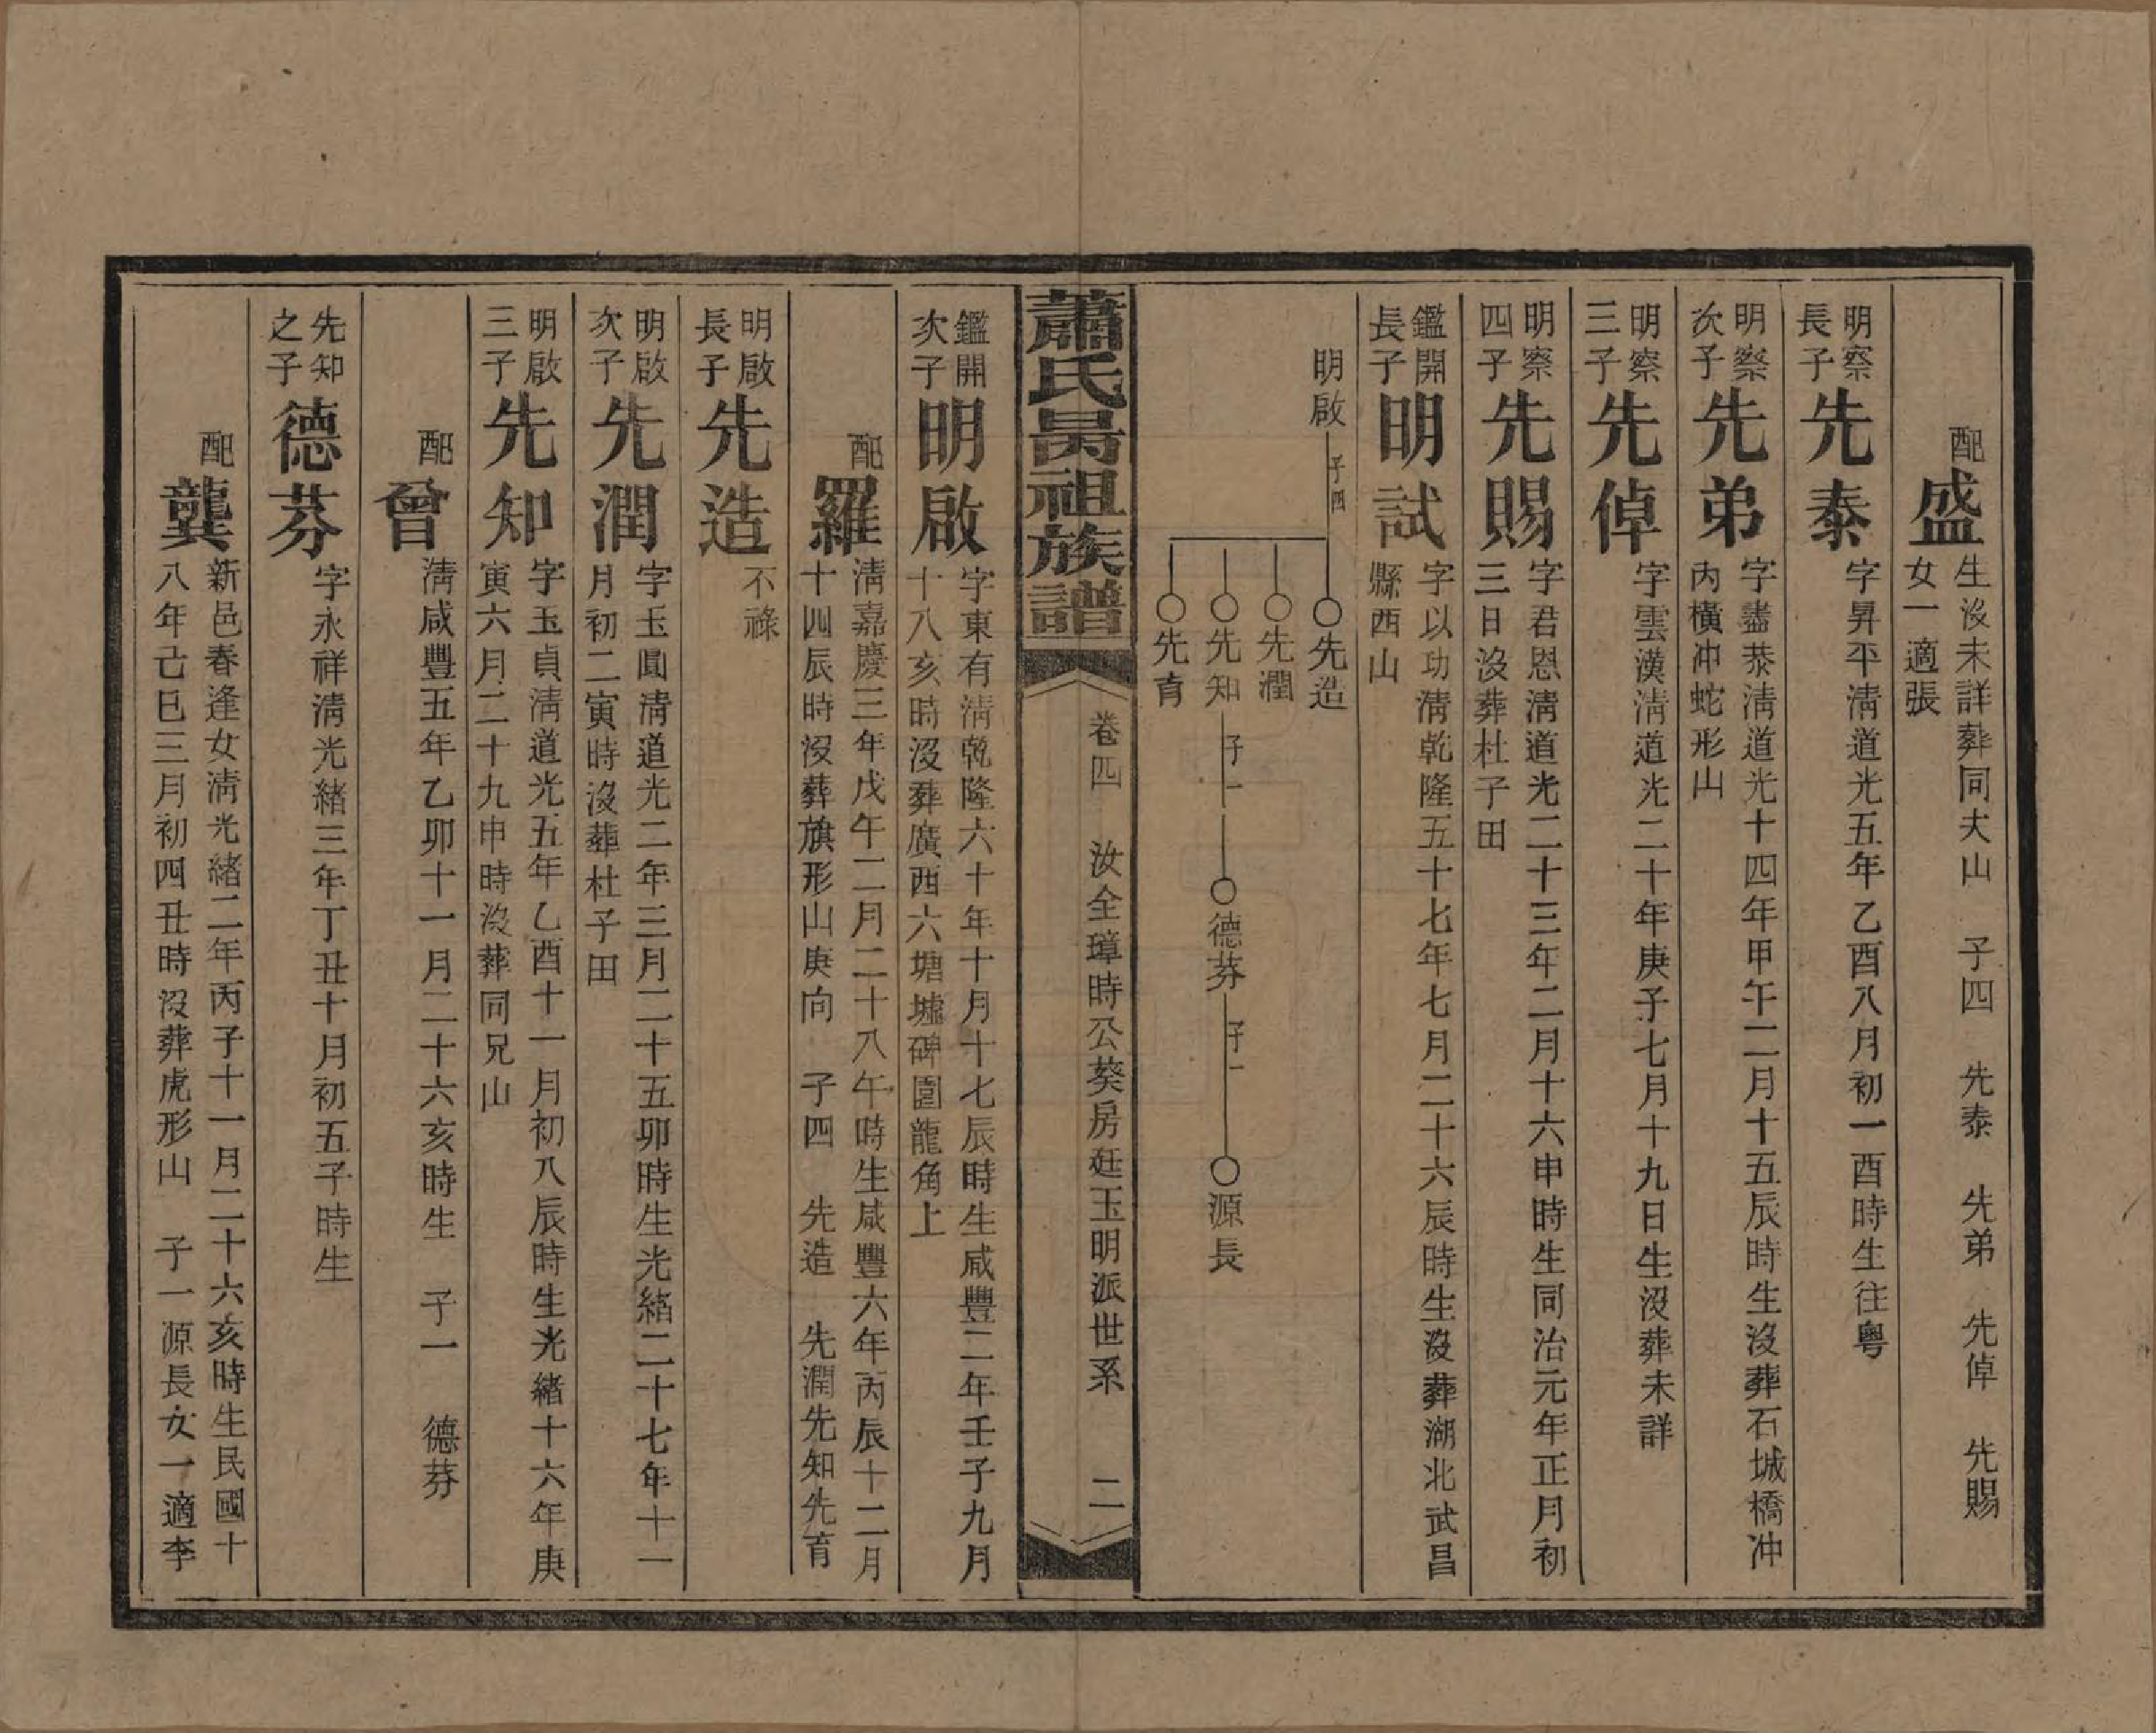 配盛生沒未詳葬同大山　子四　先泰　先弟　先倬　先賜
女一適張
明察長子先泰字昇平淸道光五年乙酉八月初一酉時生往粵
明察次子先弟字盡恭淸道光十四年甲午二月十五辰時生沒葬石城橋冲
內橫冲蛇形山
明察三子先倬字雲漢淸道光二十年庚子七月十九日生沒葬未詳
明察四子先賜字君恩淸道光二十三年二月十六申時生同治元年正月初
三日沒葬杜子田
鑑開長子明試字以功淸乾隆五十七年七月二十六辰時生沒葬湖北武昌
縣西山
明啟　子四　先造
先潤
先知　子一　德芬　子一　源長
先育
蕭氏昺祖族譜
卷四　汝全璋時公葵房廷玉明派世系　二
鑑開次子明啟字東有淸乾隆六十年十月十七辰時生咸豐二年壬子九月
十八亥時沒葬廣西六塘墟碑圍龍角上
配羅淸嘉慶三年戊午二月二十八午時生咸豐六年丙辰十二月
十四辰時沒葬旗形山庚向　子四　先造　先潤先知先育
明啟長子先造不祿
明啟次子先潤字玉圓淸道光二年三月二十五卯時生光緒二十七年十一
月初二寅時沒葬杜子田
明啟三子先知字玉貞淸道光五年乙酉十一月初八辰時生光緒十六年庚
寅六月二十九申時沒葬同兄山
配曾淸咸豐五年乙卯十一月二十六亥時生　子一　德芬
先知之子德芬字永祥淸光緒三年丁丑十月初五子時生
配龔新邑春逢女淸光緒二年丙子十一月二十六亥時生民國十
八年己巳三月初四丑時沒葬虎形山　子一源長女一適李